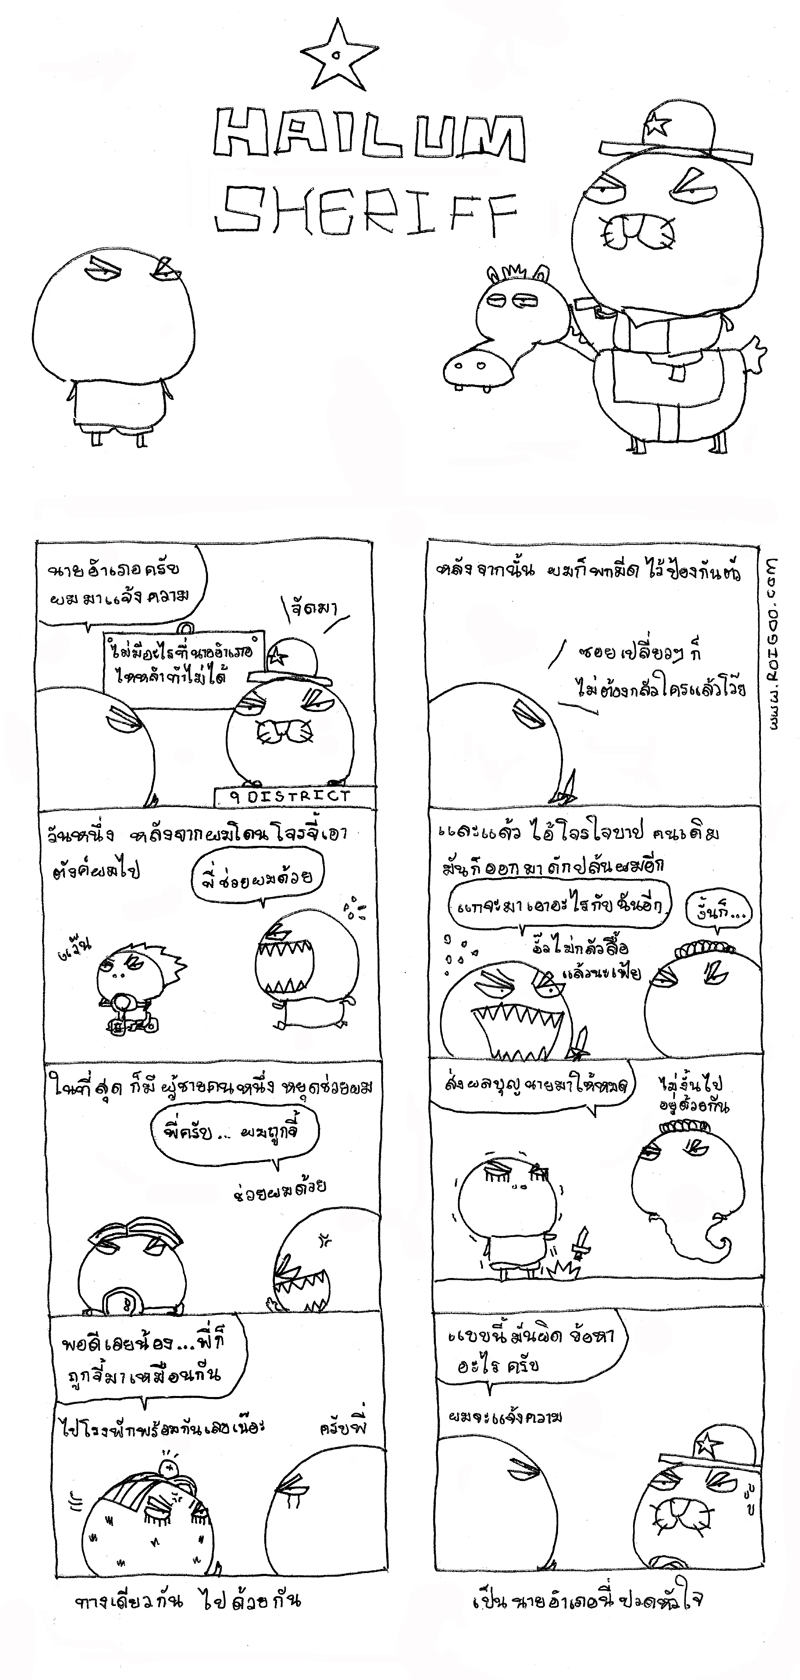 HAILUM
SHERIFF
นายอำเภอครับ
ผมมาแจ้งความ
จัดมา
ไม่มีอะไรที่นายอำเภอ
ไหหลำทำไม่ได้
9 DISTRICT
วันหนึ่ง หลังจากผมโดนโจรจี้เอา
ตังค์ผมไป
พี่ช่วยผมด้วย
แง้น
ในที่สุด ก็มี ผู้ชายคนหนึ่ง หยุดช่วยผม
พี่ครับ... ผมถูกจี้
ช่วยผมด้วย
พอดีเลยน้อง...พี่ก็
ถูกจี้มาเหมือนกัน
ไปโรงพักพร้อมกันเลยเน๊อะ
ครับพี่
ทางเดียวกัน ไปด้วยกัน
หลังจากนั้น ผมก็พกมีด ไว้ป้องกันตัว
ซอยเปลี่ยวๆ ก็
ไม่ต้องกลัวใครแล้วโว๊ย
และแล้ว ไอ้โจรใจบาป คนเดิม
มันก็ออกมาดักปล้นผมอีก
แกจะมาเอาอะไรกับฉันอีก
งั้นก็...
ชั้วไม่กลัวลื้อ
แล้วนะเฟ้ย
ส่งผลบุญนายมาให้หมด
ไม่งั้นไป
อยู่ด้วยกัน
แบบนี้ มันผิด ข้อหา
อะไร ครับ
ผมจะแจ้งความ
เป็น นายอำเภอนี่ ปวดหัวใจ